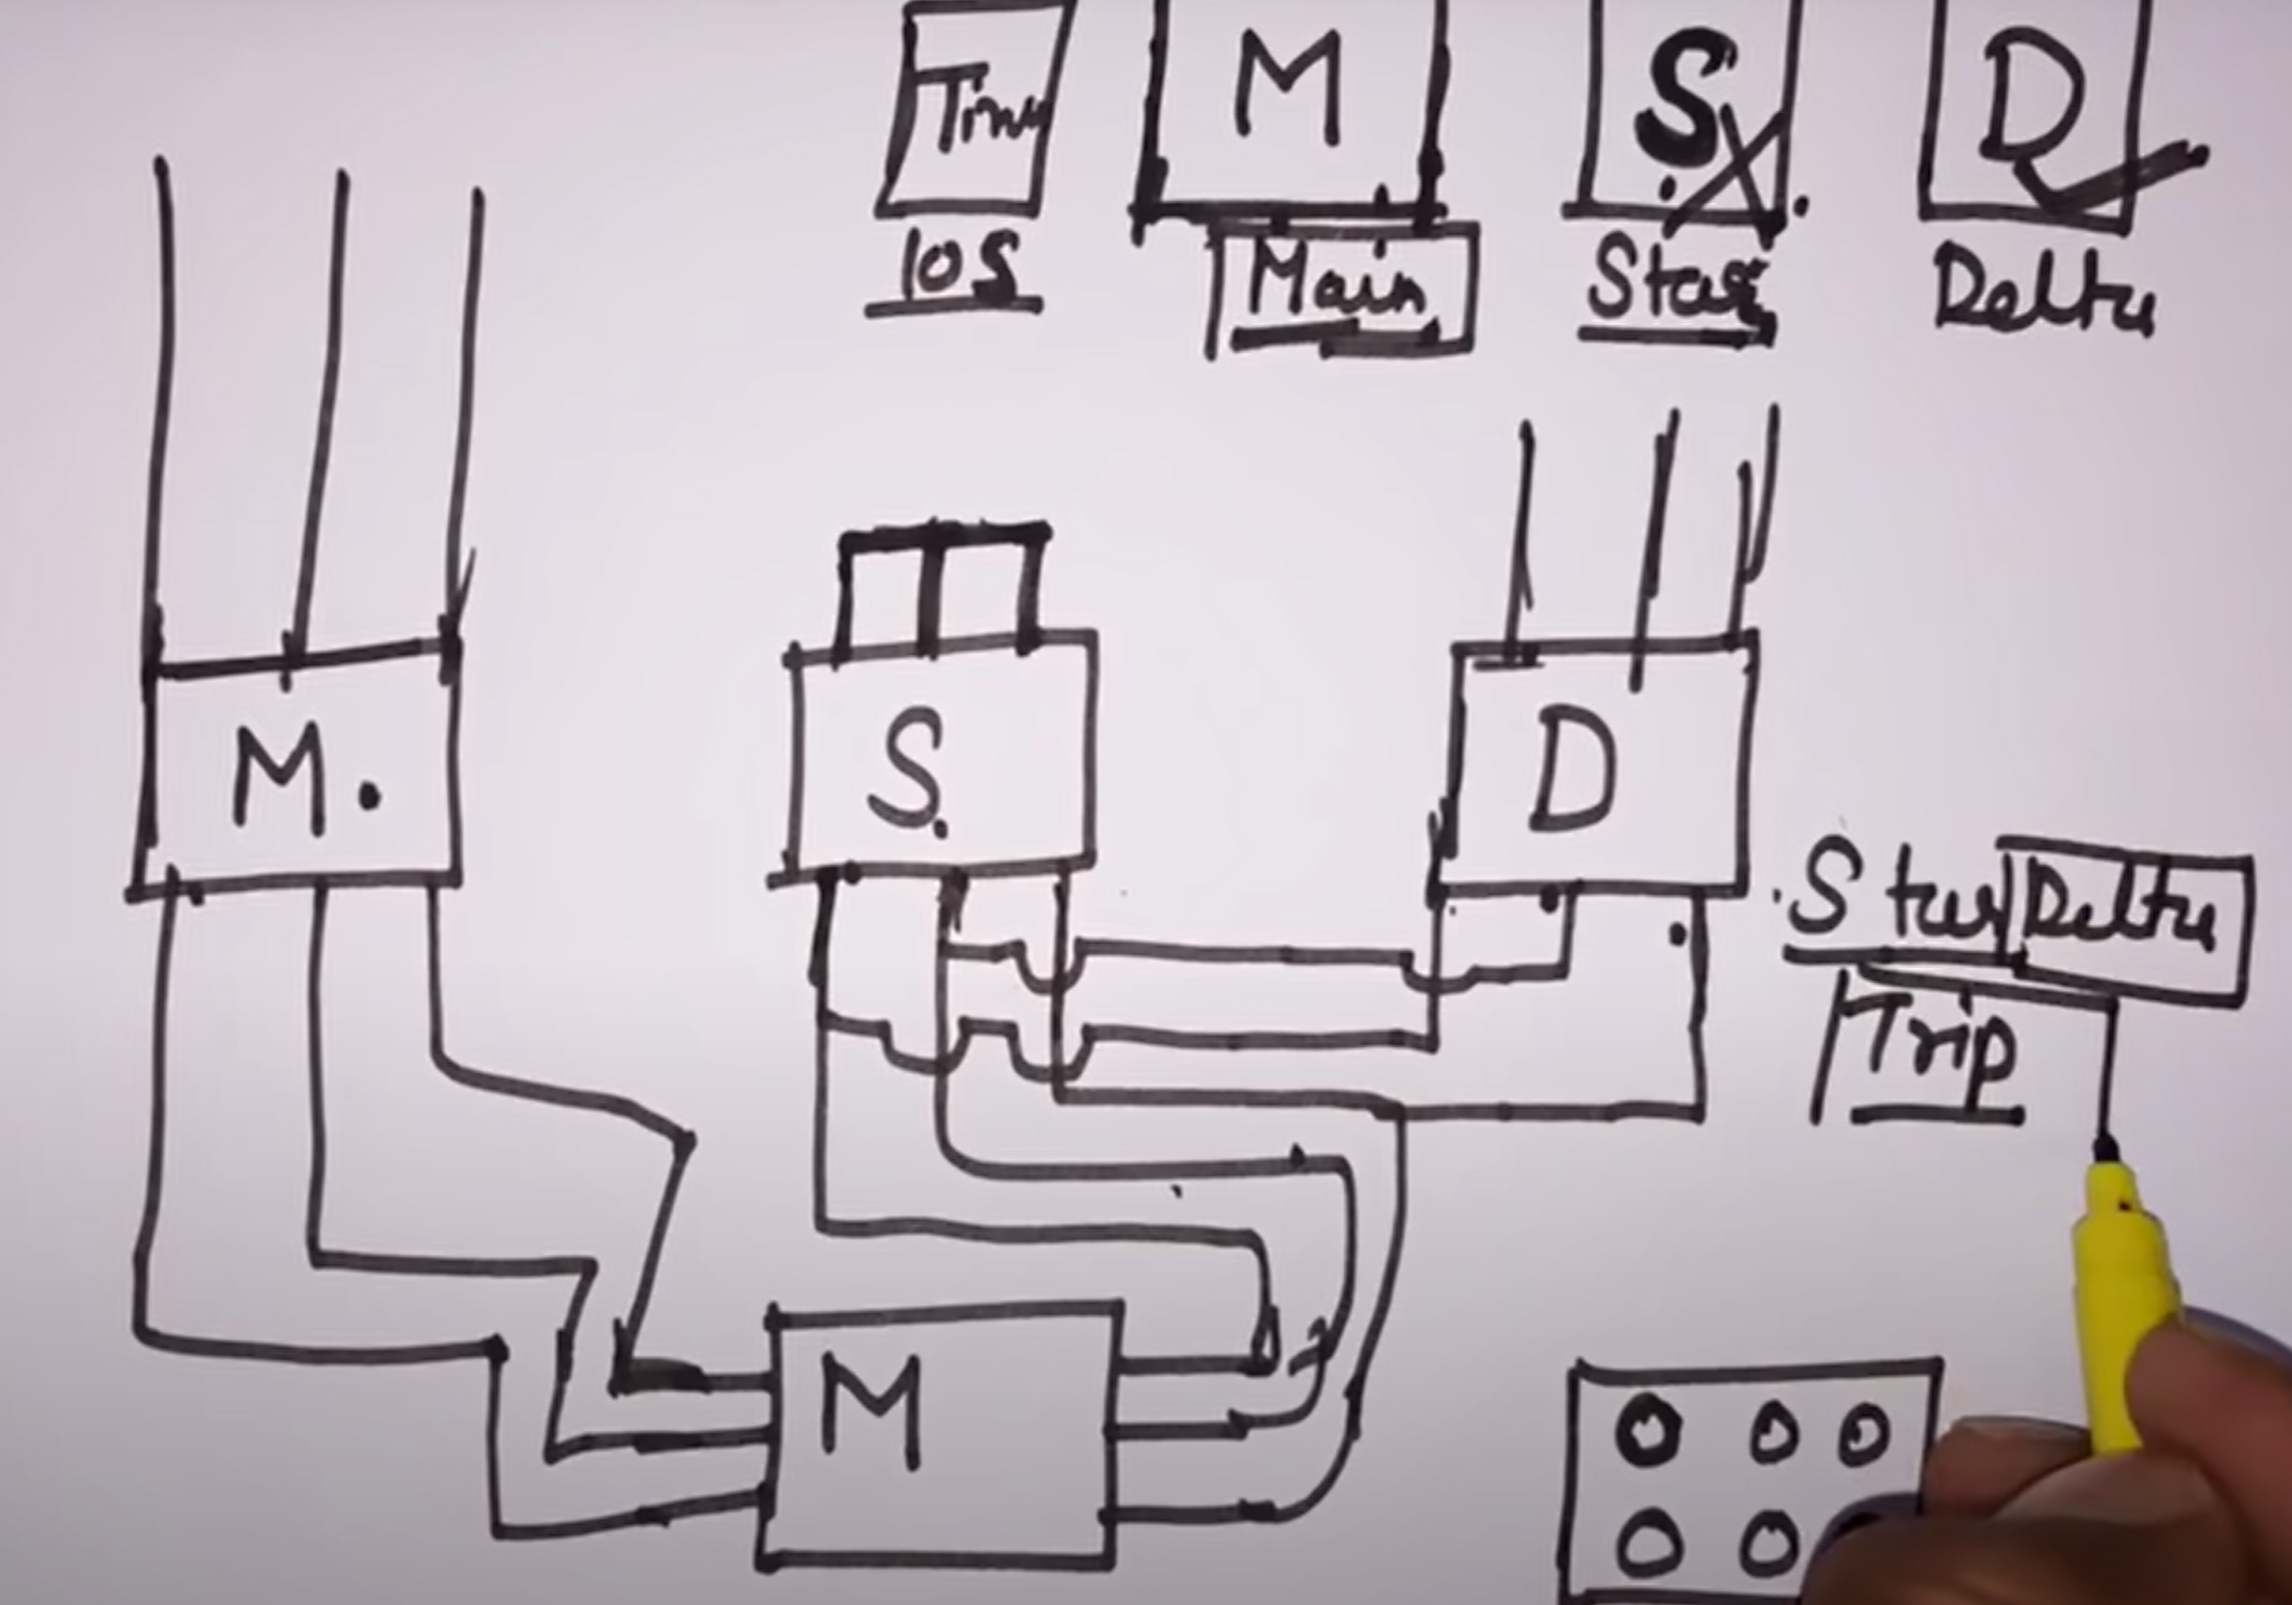 Time M S D
10S Main Star Delta
M. S. D
Star Delta
Trip
M